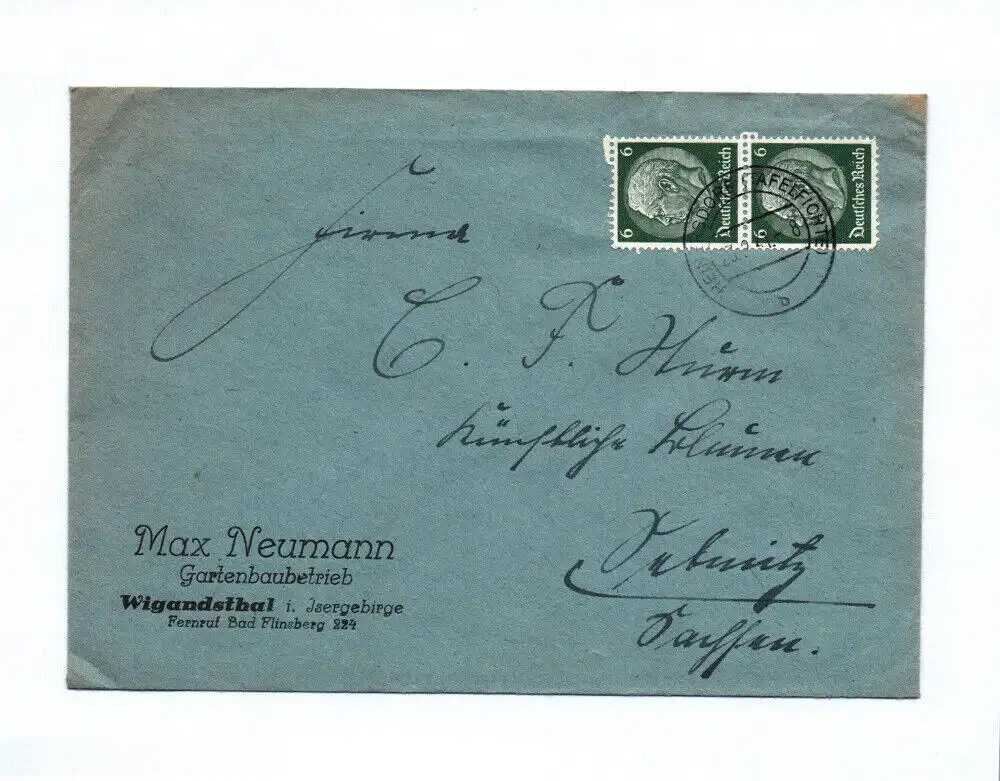 6 6
Deutsches Reich
6 6
Deutsches Reich
(TAFELFICHTE)
a
Firma
C. F. Sturm
Künstliche Blumen
Sebnitz
Sachsen.
Max Neumann
Gartenbaubetrieb
Wigandsthal i. Isergebirge
Fernruf Bad Flinsberg 224